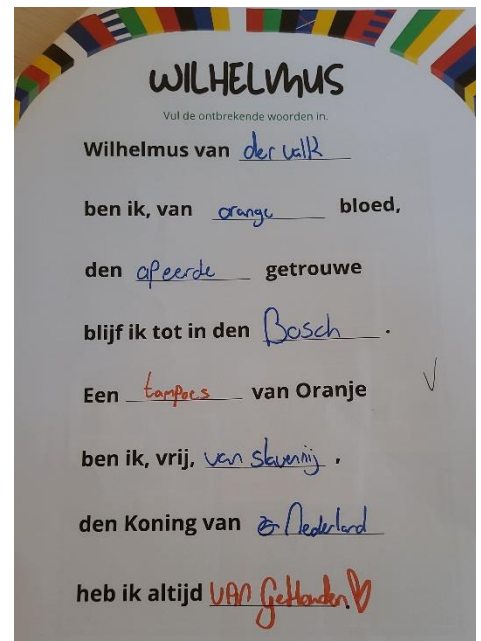 WILHELMUS
Vul de ontbrekende woorden in.
Wilhelmus van der valk
ben ik, van orange bloed,
den apeerde getrouwe
blijf ik tot in den Bosch.
Een tompoes van Oranje
ben ik, vrij, van slavernij.
den Koning van Nederland
heb ik altijd VAN GeHouden.